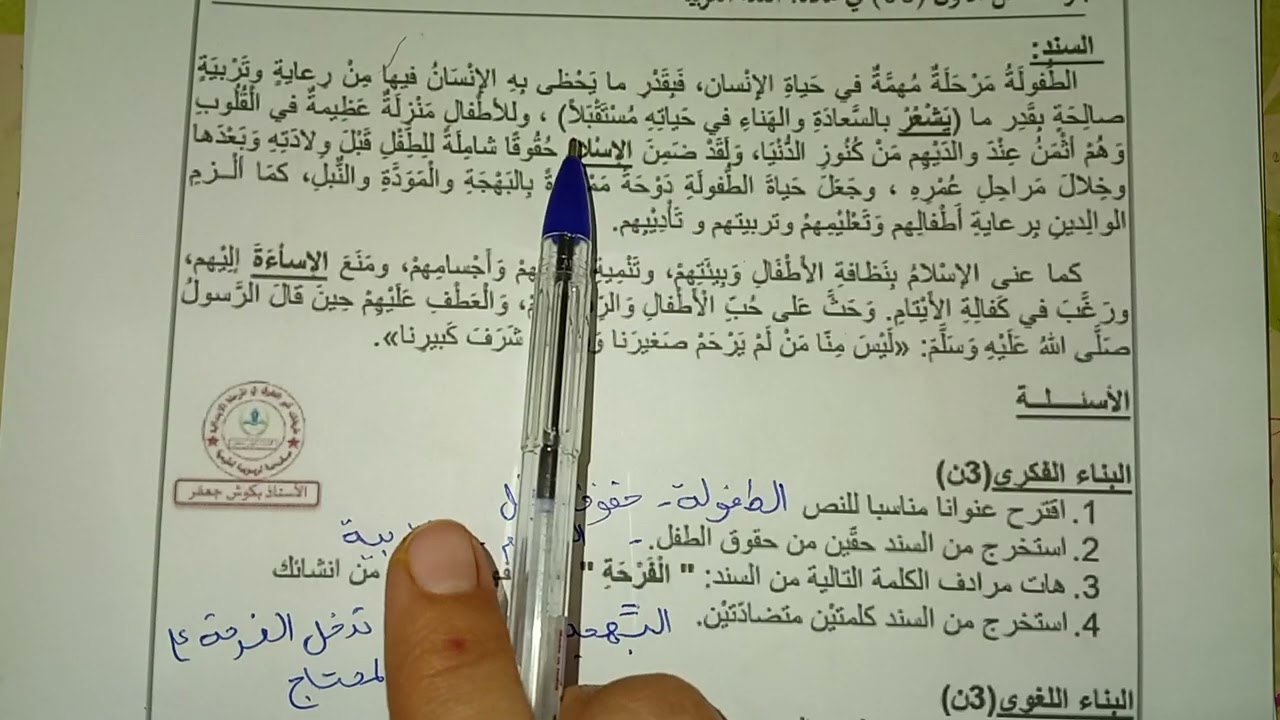 السند:
الطُّفولَةُ مَرْحَلَةٌ مُهِمَّةٌ في حَياةِ الإِنْسان، فَبِقَدْرِ ما يَحْظى بِهِ الإِنْسَانُ فيها مِنْ رِعايةٍ وتَرْبِيَةٍ
صالِحَةٍ بقَدِر ما (يَشْعُرُ بالسَّعادَةِ والهَناءِ في حَياتِهِ مُسْتَقْبَلاً) ، وللأطْفالِ مَنْزِلَةٌ عَظِيمةٌ في الْقُلُوبِ
وَهُمْ أثْمَنُ عِنْدَ والدَيْهِم مَنْ كُنُوزِ الدُّنْيَا، وَلَقَدْ ضَمِنَ الإِسْلا حُقُوقًا شامِلَةً للطِفْلِ قَبْلَ وِلادَتِهِ وَبَعْدَها
وخِلالَ مَراحِلِ عُمْرِهِ ، وجَعَلَ حَياةَ الطُّفولَةِ دَوْحَةً بِالبَهْجَةِ والْمَوَدَّةِ والنُّبلِ، كمَا ألْـزمِ
الوالِدينِ بِرعايةِ أَطْفالِهِم وَتَعْلِيْمِهِمْ وتربيتهم و تَأدِيْبِهِم.
كما عنى الإسْلامُ بِنَظافةِ الأطْفَالِ وَبِيئَتِهِمْ، وتَنْمِيةِ وَأَجْسامِهِمْ، ومَنَعَ الإساْءَةَ الِيْهِم،
ورَغَّبَ في كَفالةِ الأيْتامِ. وَحَثَّ عَلى حُبِّ الْأَطْفالِ وَالْعَطْفِ عَلَيْهِمْ حِينَ قالَ الرَّسولُ
صَلَّى اللهُ عَلَيْهِ وَسَلَّمَ: «لَيْسَ مِنّا مَنْ لَمْ يَرْحَمْ صَغيرَنا شَرَفَ كَبيرِنا».
الأسئـــلـــة
الأستاذ بكوش جعفر
البناء الفكري(3ن)
1. اقترح عنوانا مناسبا للنص الطفولة - حقوق
2. استخرج من السند حقّين من حقوق الطفل. -
3. هات مرادف الكلمة التالية من السند: " الْفَرْحَةِ " من انشائك
4. استخرج من السند كلمتيْن متضادّتيْن. تدخل الفرحة
المحتاج
البناء اللغوي(3ن)